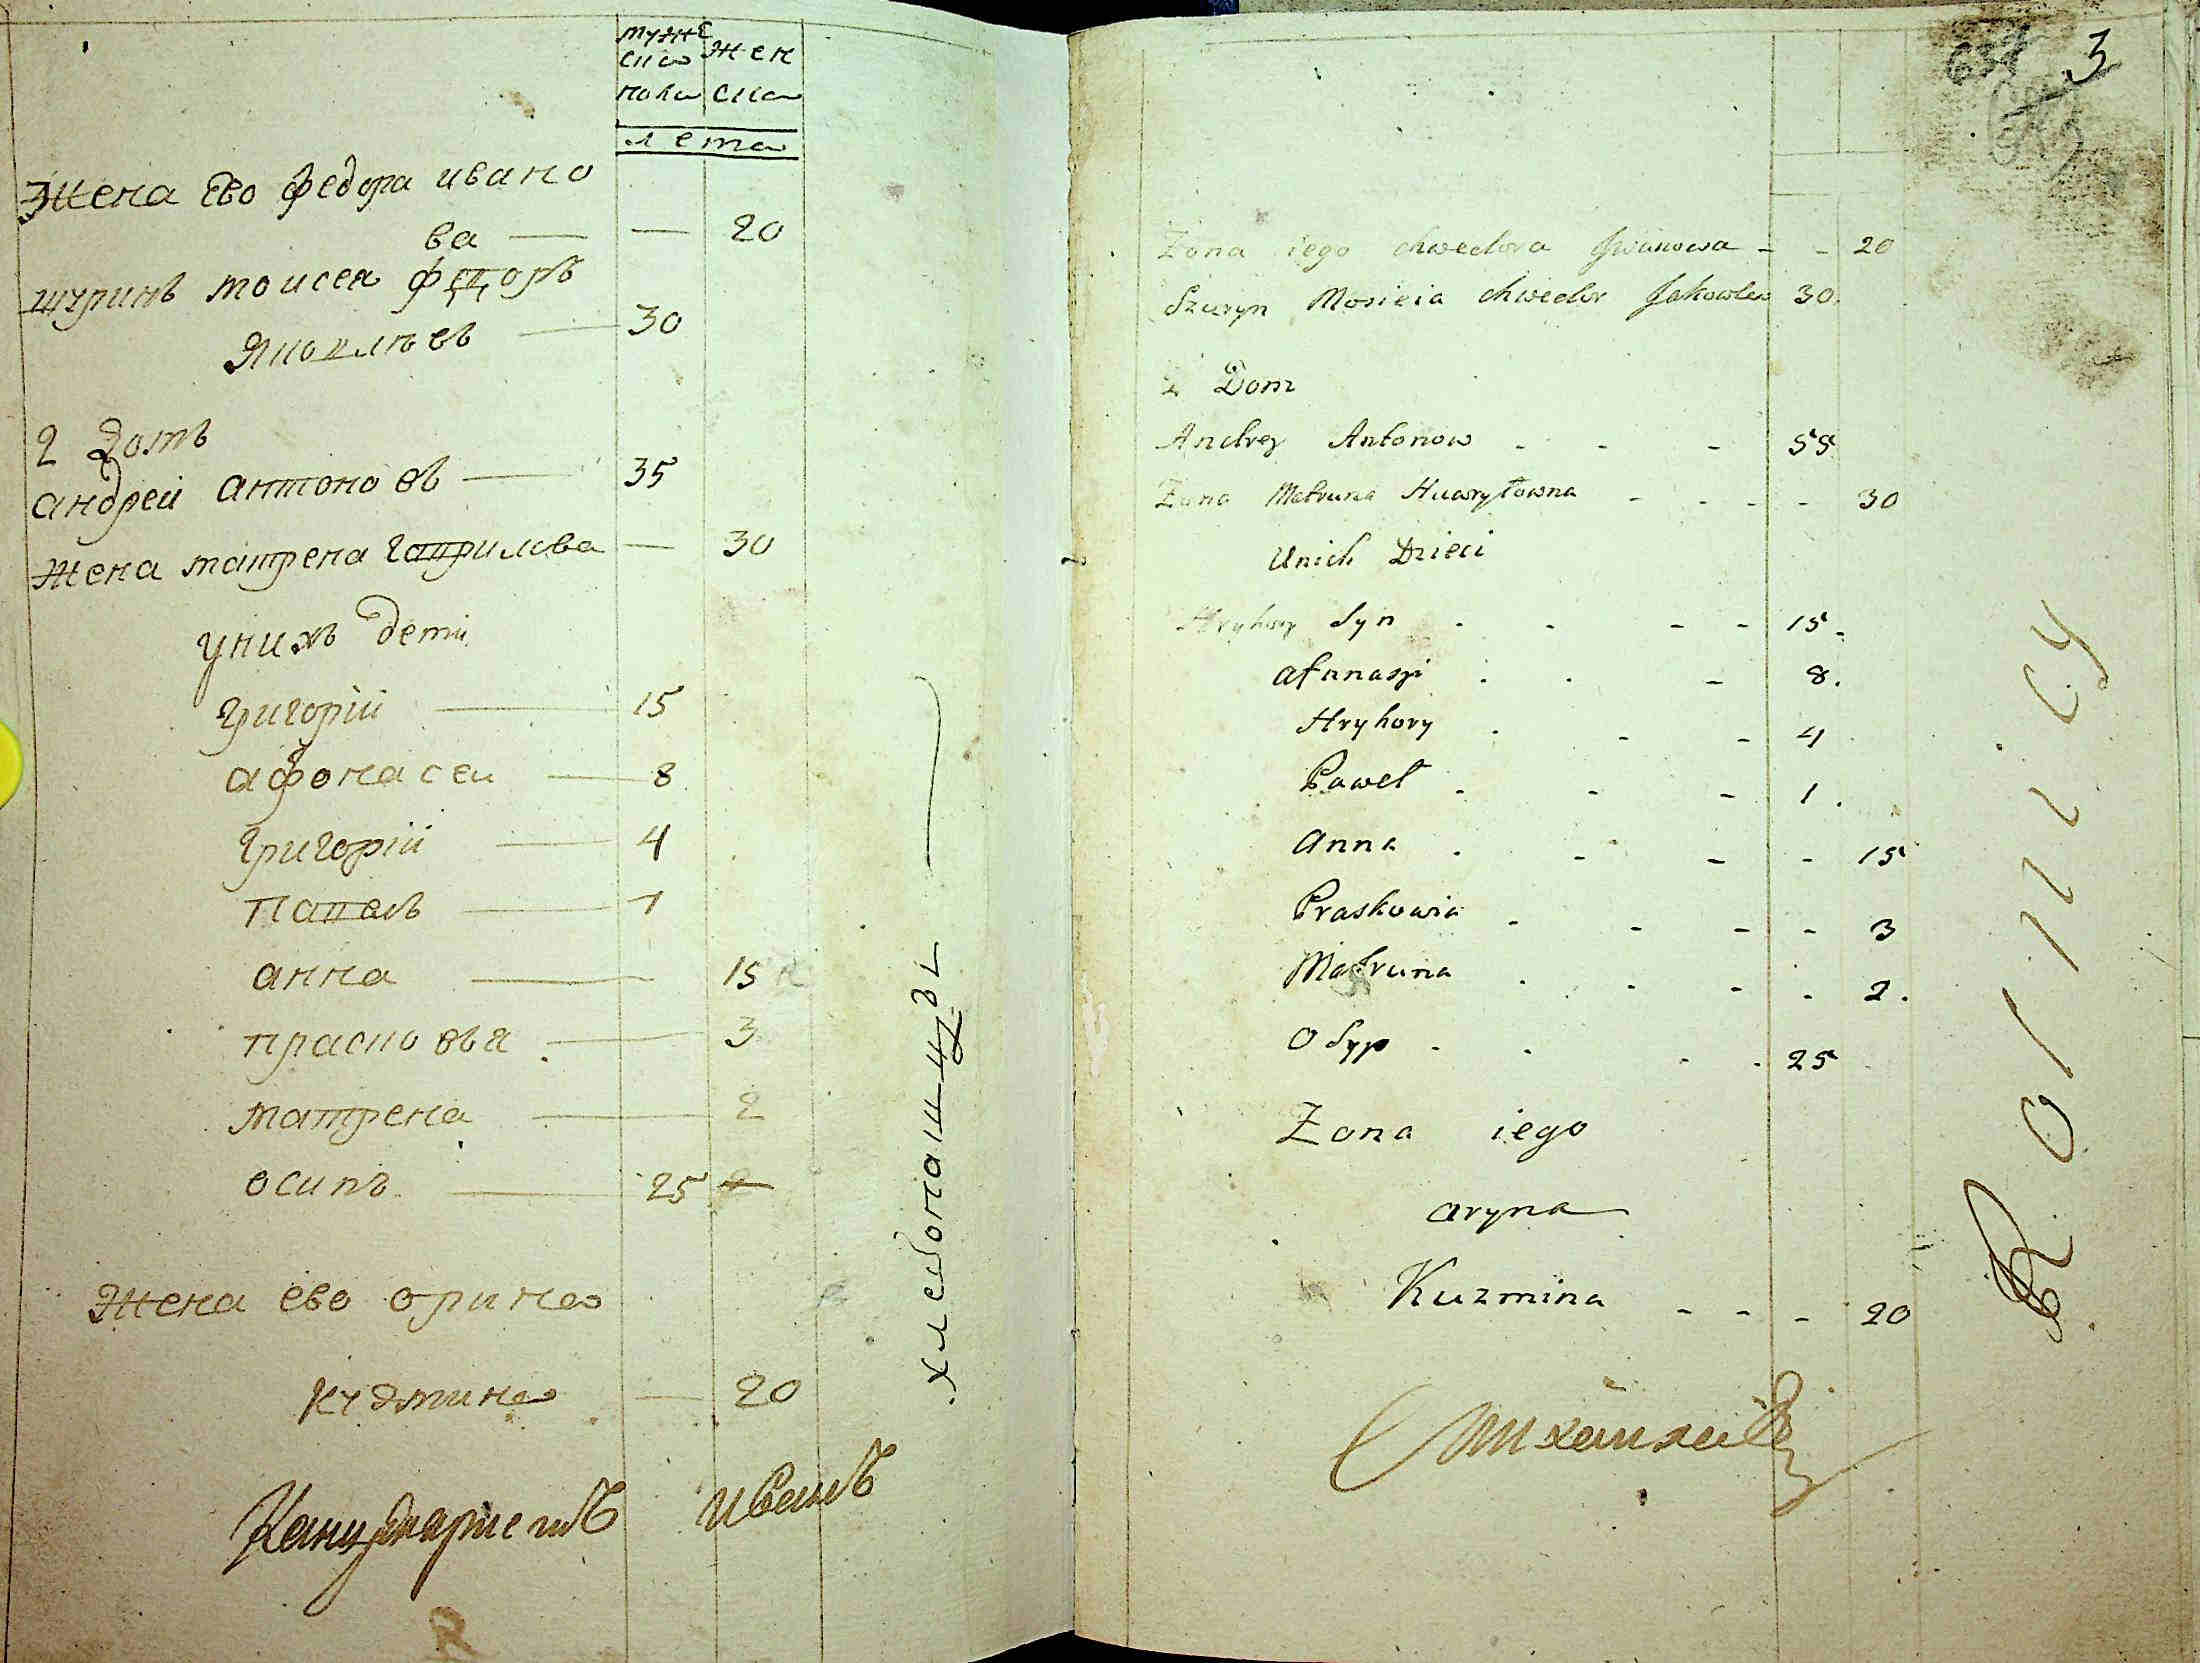 мужс жен
ска ска
пола
лета
Жена ево федора ивано
ва — — 20
шуринъ моисея федоръ
Яковлевъ — 30
2 Домъ
андрей антоновъ — 35
Жена матрена гаврилова — 30
у нихъ дети
григорій — 15
афонасеи — 8
григорій — 4
Павелъ — 1
анна — 15
прасковья — 3
матрена — 2
осипъ — 25
Жена ево орина
кузмина — 20
Иванъ
хлебопашцы
3
Zona iego chwedora Jwanowa - - 20
Szuryn Mosieia chwedor Jakowlew 30.
2 Dom
Andrey Antonow - - - 55
Zona Matruna Hawryłowna - - - - 30
Unich Dzieci
Hryhory Syn - - - - 15.
afanaszi - - - 8.
Hryhory - - - 4
Paweł - - - 1.
Anna - - - - 15
Praskowia - - - - 3
Matruna - - - - 2.
Osyp - - - - 25
Zona iego
aryna
Kuzmina - - - 20
Rolnicy